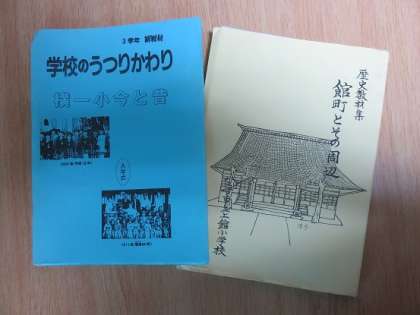 3学年 副教材
学校のうつりかわり
横一小今と昔
歴史教材集
館町とその周辺
館小学校